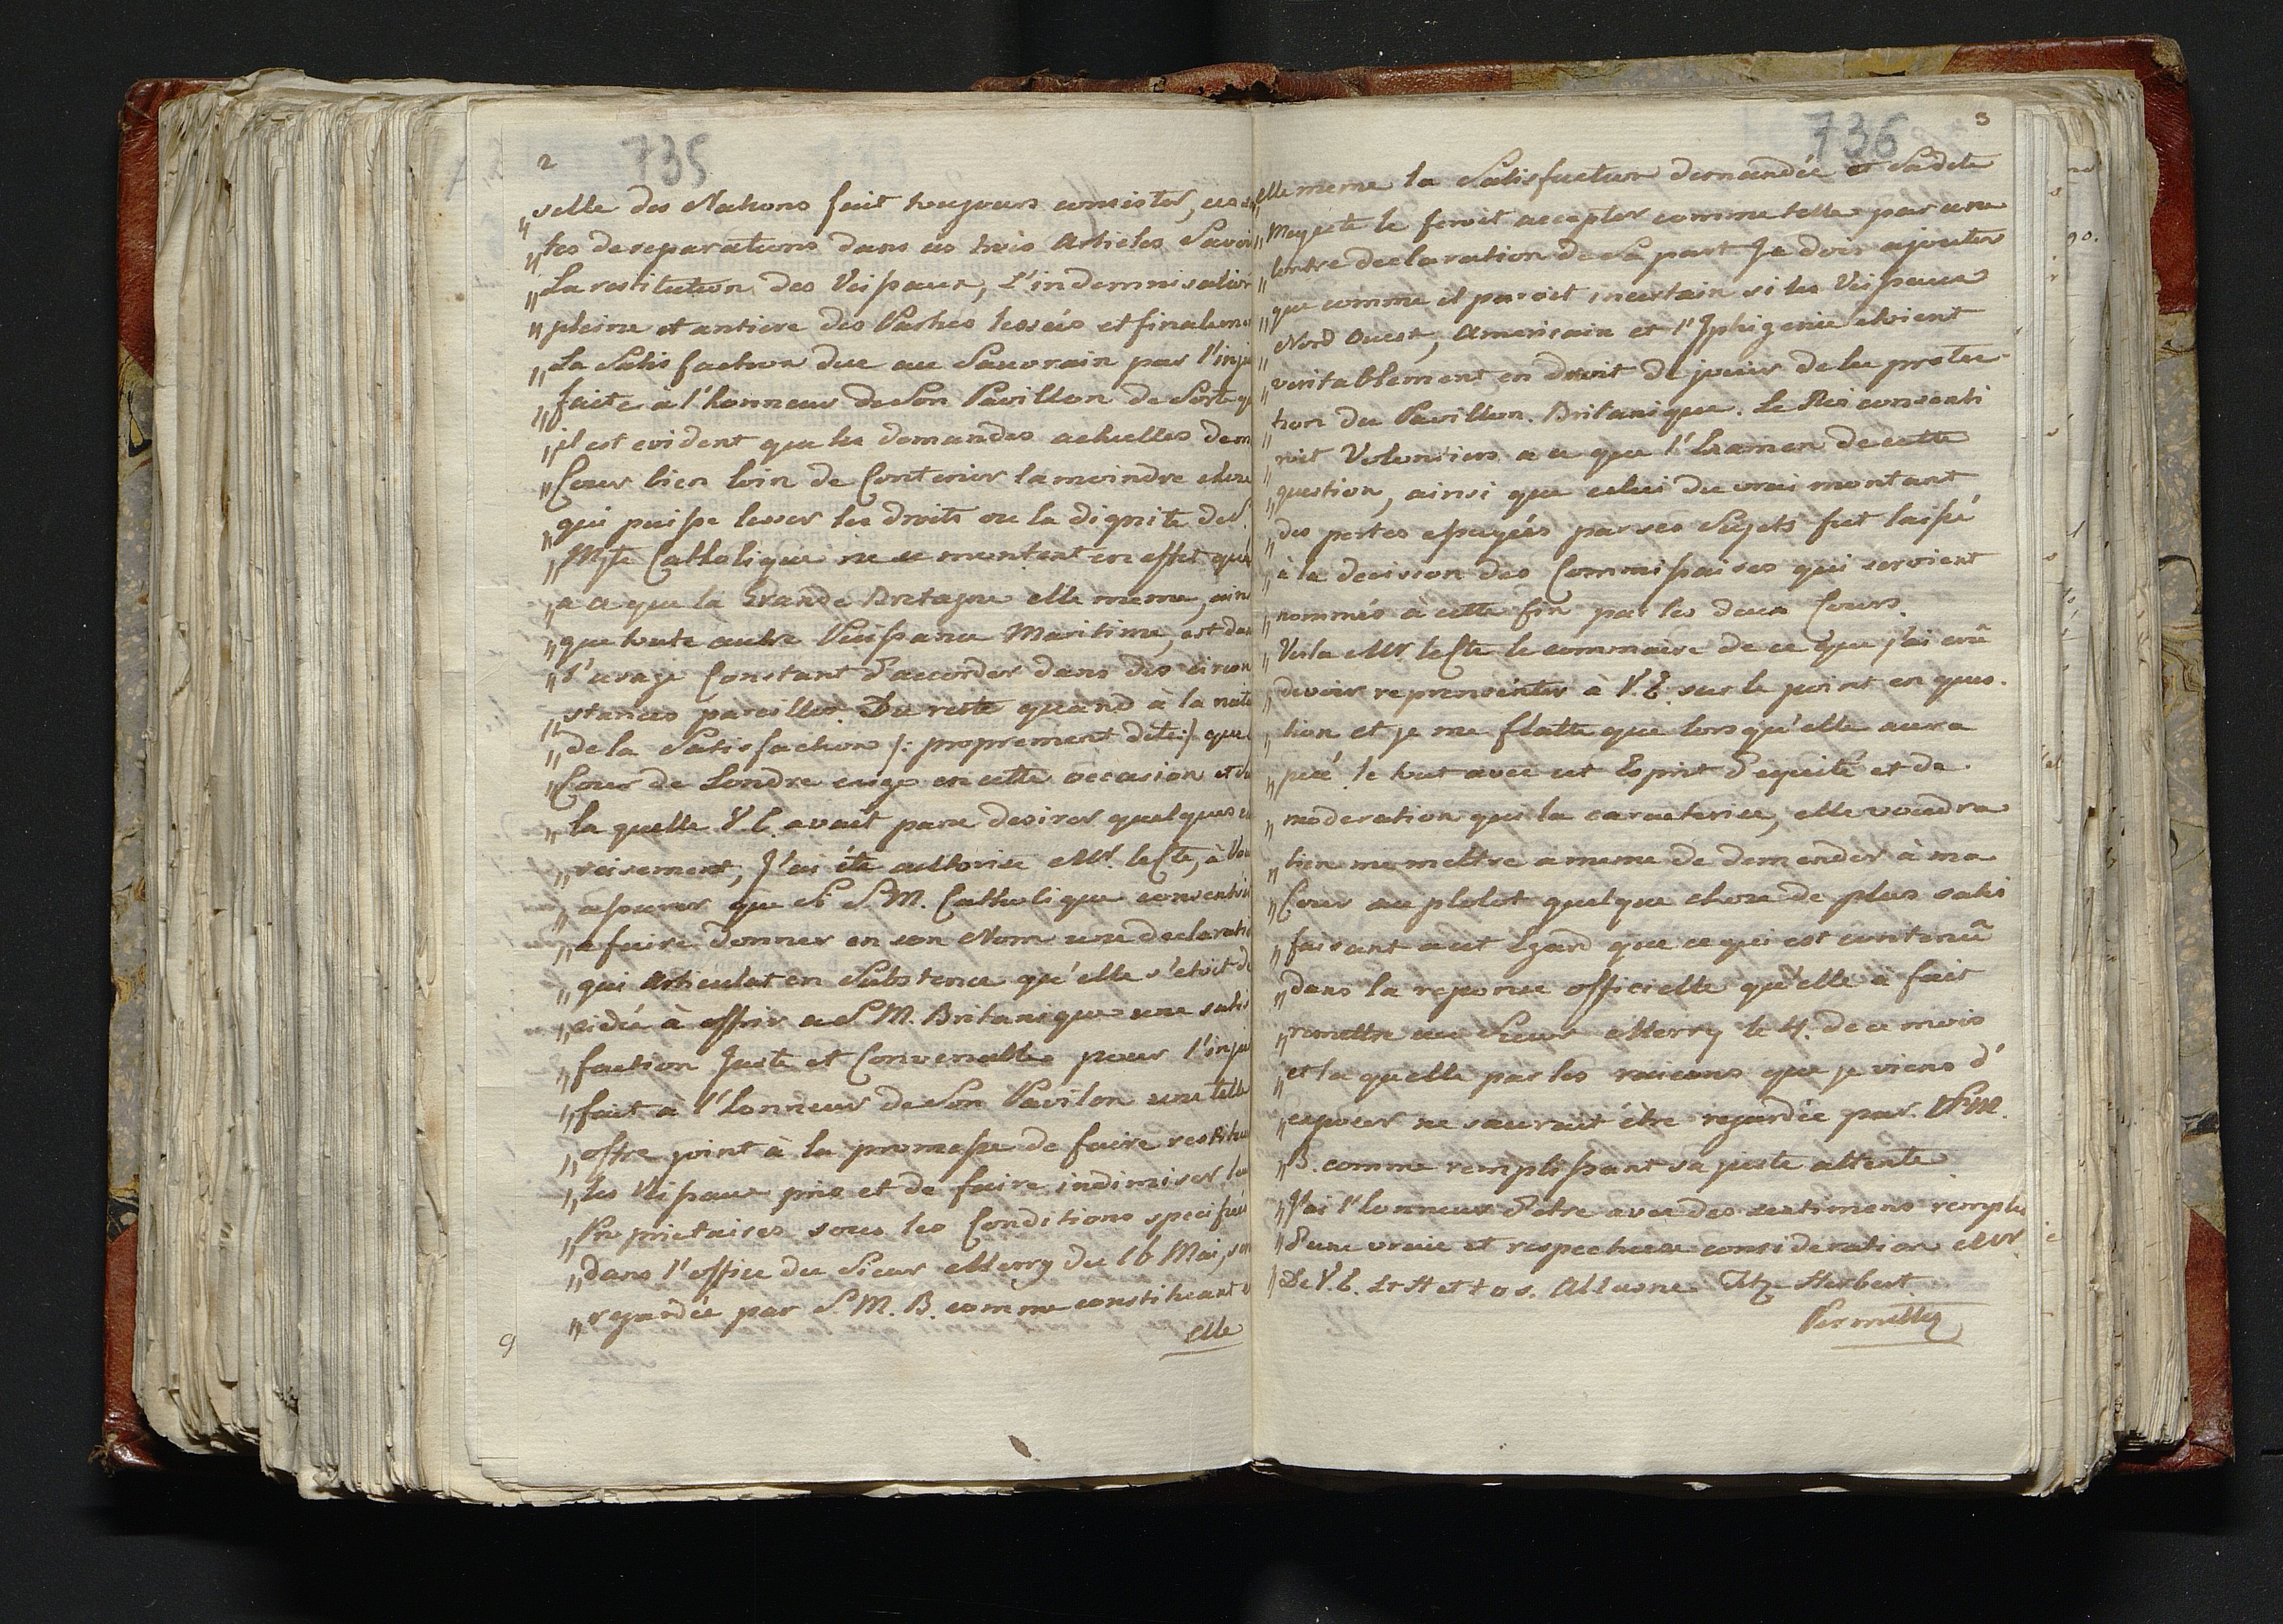 2 735
„selle des Nations fait toujours consister, ces
„tes de reparations dans ces trois Articles Savoir
„La restitution des Veissaux, L'indemnisation
„pleine et antiere des Parties lessées et finaleme
„La Satisfaction due au Sauvrain par l'inju
„faite à l'honneur de Son Pavillon de Sorte q
„il est evident que les demandes actuelles de m
„Cour bien loin de Contenir la moindre chose
„qui puisse lesser les droits ou la dignite de S.
„Mjte Catholique ne se montent en effet que
„a ce que la Grande Bretagne elle meme, ain
„que toute autre Puissance Maritime, est dan
„l'usage Constant d'accorder dans des circon
„stances pareilles. Du reste quand à la natu
„de la Satisfaction /: proprement dite:/ que
„Cour de Londre exige en cette occasion et su
„la quelle V.E. avait paru desirer quelques e
„rcisement, J'ai éte authorisé Mr. le Cte, à Vou
„assurer que si S.M. Catholique consentoi
„a faire donner en son Nom une declarati
„qui Articulat en Substence qu'elle s'etoit de
„cidée à offrir a S.M. Britanique une satis
„faction Juste et Convenable pour l'inju
„fait a l'honneur de Son Pavilon une telle
„offre joint à la promesse de faire restitue
„les Veissaux pris et de faire indimiser le
„Proprietaires sous les Conditions specifiés
„dans l'office du Sieur Merry du 16 Mai, se
„regardée par S.M.B. comme constituant e
elle
9
736 3
elle meme la Satisfaction demandée et Sadite
„Mayeste le feroit accepter comme telle par une
„Contre declaration de Sa part Je dois ajouter
„que comme il paroit incertain si les Veissaux
„Nord Ouest, Americain et l'Iphigenie etoient
„veritablement en droit de jouir de la protec-
„tion du Pavillon Britanique. Le Roi consenti
„roit Volontiers a ce que l'Examen de cette
„question, ainsi que celui du vrai montant
„des pertes essuyées par ses Sujets fut laissé
„à la decision des Commissaires qui seroient
„nommés à cette fin par les deux Cours.
„Voila Mr le Cte le sommaire de ce que j'ai crû
„devoir reprensenter à V.E. sur le point en ques-
„tion et je me flatte que lors qu'elle aura
„pesé le tout avec cet Esprit d'equité et de
„moderation qui la caracterise, elle voudra
„bien me mettre a meme de demender à ma
„Cour au plotot quelque chose de plus satis
„faisant a cet Egard que ce qui est contenû
„dans la reponse officielle qu'elle à fait
„remettre au Sieur Merry le 4. de ce mois
„et la quelle par les raisons que je viens d'
„exposer ne saurait être regardée par S.M.
„B. comme remplissant sa juste attente
„J'ai l'honneur d'etre avec des sentimens remplis
„d'une vraie et respectueuse consideration Mr.
„De V.E. Alleyne Fitz Herbert.
Permettez